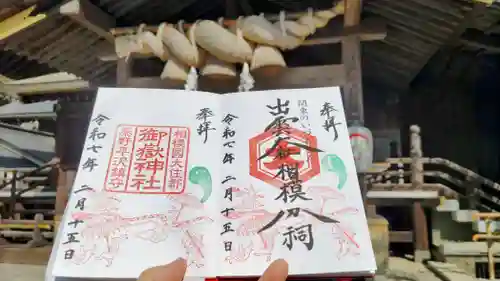 関東のいづも
奉拝
出雲大社相模分祠
令和七年二月十五日
奉拝
相模國大住郡
御嶽神社
秦野平沢鎮守
令和七年二月十五日